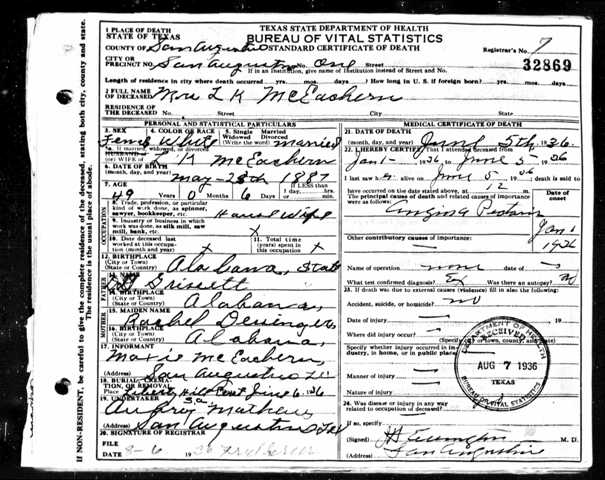 TEXAS STATE DEPARTMENT OF HEALTH
BUREAU OF VITAL STATISTICS
STANDARD CERTIFICATE OF DEATH
1 PLACE OF DEATH
STATE OF TEXAS
COUNTY OF San Augustine
CITY OR PRECINCT NO. San Augustine One Street
If in an institution, give name of institution instead of Street and No.
Registrar's No. 7
32869
Length of residence in city where death occurred yrs. mos. days How long in U. S. if foreign born? yrs. mos. days
2 FULL NAME OF DECEASED Mrs L K McEachern
RESIDENCE OF THE DECEASED No. Street City State
PERSONAL AND STATISTICAL PARTICULARS
3. SEX Female
4. COLOR OR RACE White
5. Single Married Widowed Divorced married
If married, widowed, or divorced
HUSBAND of
(or) WIFE of L K McEachern
6. DATE OF BIRTH
(month, day, year) May-28th 1887
7. AGE 49 Years 0 Months 6 Days
If LESS than 1 day
8. Trade, profession, or particular kind of work done, as spinner, sawyer, bookkeeper, etc. House Wife
9. Industry or business in which work was done, as silk mill, saw mill, bank, etc. x
10. Date deceased last worked at this occupation (month and year) x
11. Total time (years) spent in this occupation x
OCCUPATION
12. BIRTHPLACE
(City or Town)
(State or Country) Alabama, State
FATHER
13. NAME Grissett
14. BIRTHPLACE
(City or Town)
(State or Country) Alabama,
MOTHER
15. MAIDEN NAME Rachel
16. BIRTHPLACE
(City or Town)
(State or Country) Alabama,
17. INFORMANT
McEachern
(Address) San Augustine
18. BURIAL, CREMATION, OR REMOVAL
Liberty Hill Cemt June 6, '36
19. UNDERTAKER
Aubrey Mathews
(Address) San Augustine Tex
20. SIGNATURE OF REGISTRAR
FILE DATE 8-6 1936
MEDICAL CERTIFICATE OF DEATH
21. DATE OF DEATH
(month, day, year) June 5th, 1936.
22. I HEREBY CERTIFY That I attended deceased from
Jan 1- 1936, to June 5- 1936
I last saw h er alive on June 5 1936 death is said to
have occurred on the date stated above, at 12 m.
The principal cause of death and related causes of importance were as follows:
Date of onset
Angina Pectoris
Jan 1
1936
Other contributory causes of importance:
Name of operation none Date of
What test confirmed diagnosis? Ex Was there an autopsy? no
23. If death was due to external causes (violence) fill in also the following:
Accident, suicide, or homicide? no
Date of injury 19
Where did injury occur?
Specify whether injury occurred in industry, in home, or in public place
Manner of injury
Nature of injury
24. Was disease or injury in any way related to occupation of deceased?
If so, specify
(Signed) M. D.
(Address) San Augustine
DEPARTMENT OF HEALTH
RECEIVED
AUG 7 1936
TEXAS
BUREAU OF VITAL STATISTICS
If NON-RESIDENT, be careful to give the complete residence of the deceased, stating both city, county and state.
The residence is the usual place of abode.